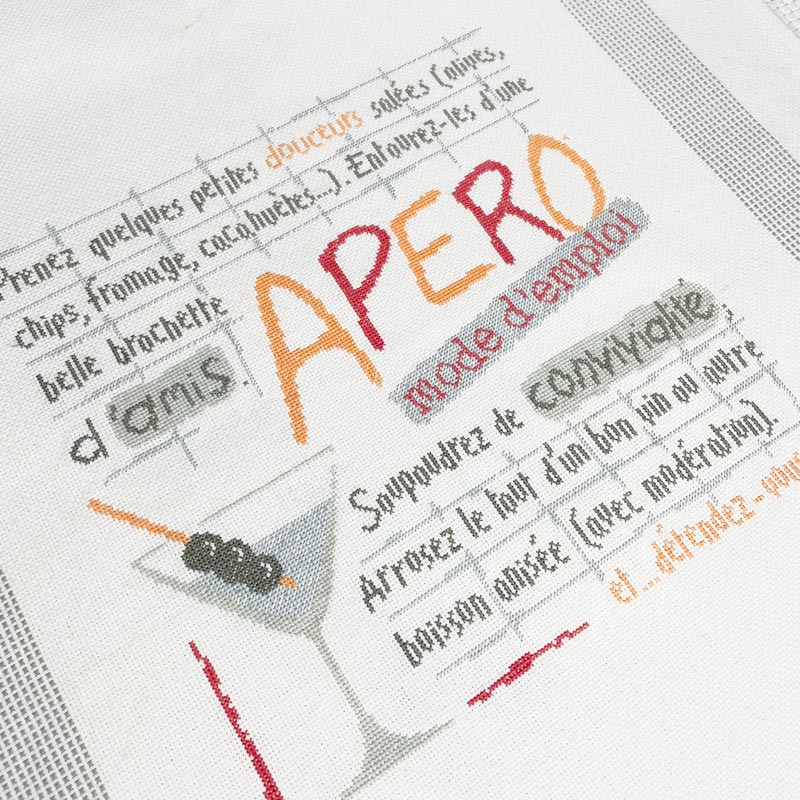 Prenez quelques petites douceurs salées (olives,
chips, fromage, cacahuètes...). Entourez-les d'une
belle brochette
d'amis.
APERO
mode d'emploi
Soupoudrez de convivialité,
Arrosez le tout d'un bon vin ou autre
boisson anisée (avec modération).
et...détendez-vous